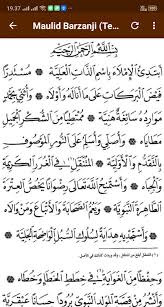 19.37
Maulid Barzanji (Te...
بِسْمِ اللهِ الرَّحْمٰنِ الرَّحِيْمِ
أَبْتَدِئُ الْإِمْلَاءَ بِاسْمِ الذَّاتِ الْعَلِيَّةِ ۞ مُسْتَدِرًّا
فَيْضَ الْبَرَكَاتِ عَلَى مَا أَنَالَهُ وَأَوْلَاهُ ۞ وَأُثَنِّي بِحَمْدٍ
مَوَارِدُهُ سَائِغَةٌ هَنِيَّةٌ ۞ مُمْتَطِيًا مِنَ الشُّكْرِ الْجَمِيْلِ
مَطَايَاهُ ۞ وَأُصَلِّي وَأُسَلِّمُ عَلَى النُّوْرِ الْمَوْصُوْفِ
بِالتَّقَدُّمِ وَالْأَوَّلِيَّةِ ۞ الْمُنْتَقِلِ فِي الْغُرَرِ الْكَرِيْمَةِ
وَالْجِبَاهِ ۞ وَأَسْتَمْنِحُ اللهَ تَعَالَى رِضْوَانًا يَخُصُّ الْعِتْرَةَ
الطَّاهِرَةَ النَّبَوِيَّةَ ۞ وَيَعُمُّ الصَّحَابَةَ وَالْأَتْبَاعَ وَمَنْ وَالَاهُ
۞ وَأَسْتَجْدِيْهِ هِدَايَةً لِسُلُوْكِ السُّبُلِ الْوَاضِحَةِ الْجَلِيَّةِ
وَحِفْظًا مِنَ الْغَوَايَةِ فِي خِطَطِ الْخَطَإِ وَخُطَاهُ ۞